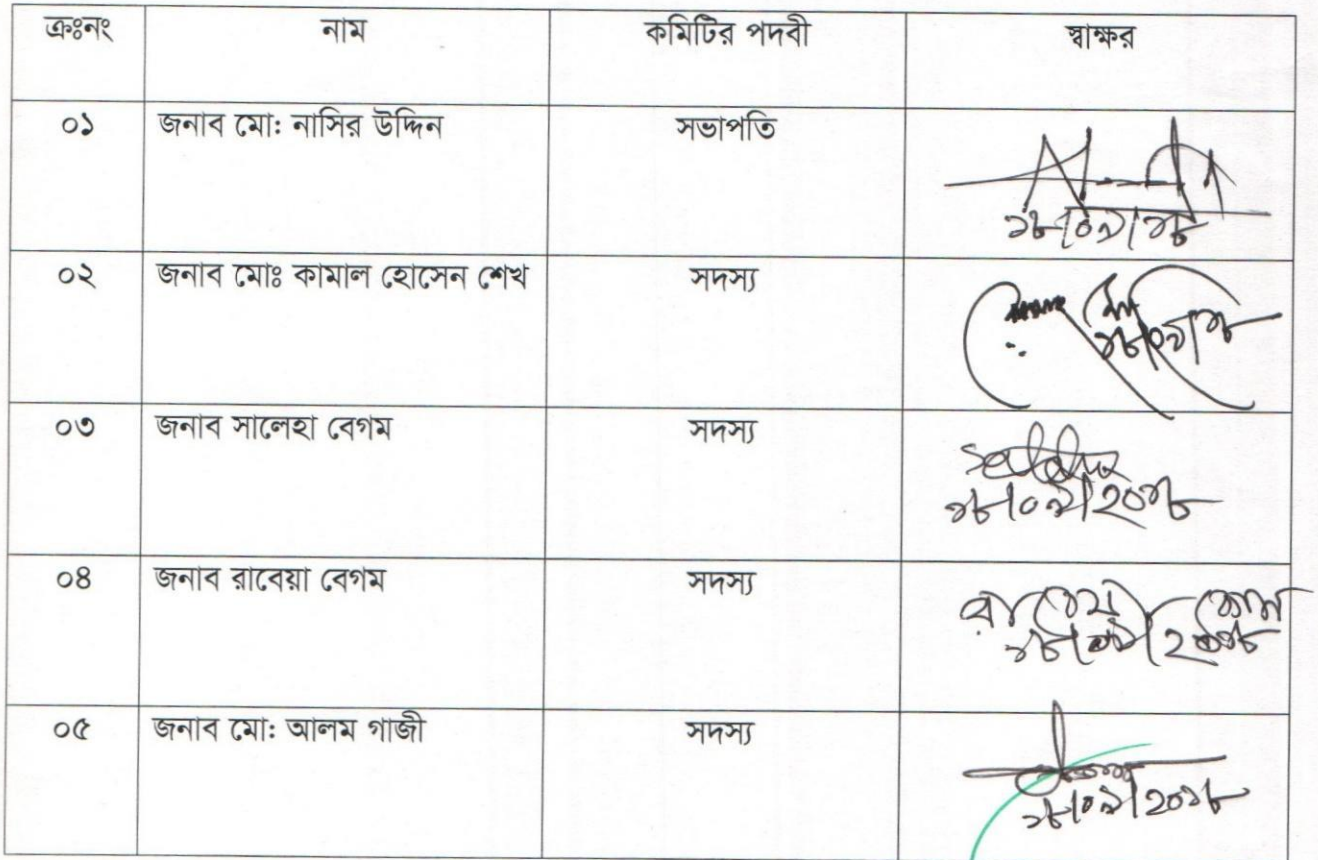 ক্রঃনং নাম কমিটির পদবী স্বাক্ষর
০১ জনাব মো: নাসির উদ্দিন সভাপতি
১৮/০৯/১৮
০২ জনাব মোঃ কামাল হোসেন শেখ সদস্য
১৮/০৯/১৮
০৩ জনাব সালেহা বেগম সদস্য Saleha
১৮/০৯/২০১৮
০৪ জনাব রাবেয়া বেগম সদস্য রাবেয়া বেগম
১৮/০৯/২০১৮
০৫ জনাব মো: আলম গাজী সদস্য
১৮/০৯/২০১৮